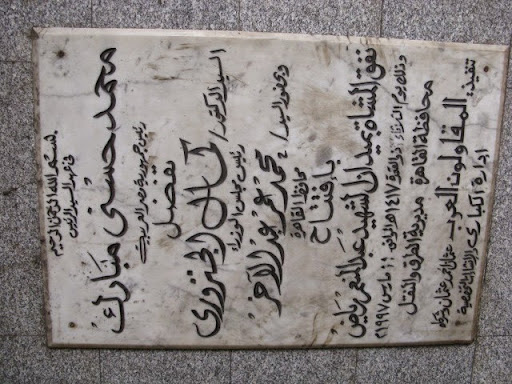 بسم الله الرحمن الرحيم
في عهد السيد الرئيس
محمد حسنى مبارك
رئيس جمهورية مصر العربية
تفضل
السيد الدكتور / كمال الجنزورى
رئيس مجلس الوزراء
وبحضور السيد / محمد عمر عبد الآخر
محافظ القاهرة
بافتتاح
نفق المشاة بميدان الشهيد عبد المنعم رياض
وذلك يوم الثلاثاء ذو القعدة ١٤١٧هـ الموافق ١١ مارس ١٩٩٧م
محافظة القاهرة مديرية الطرق والنقل
تنفيذ: المقاولون العرب عثمان أحمد عثمان وشركاه
إدارة الكبارى والإنشاءات التخصصية